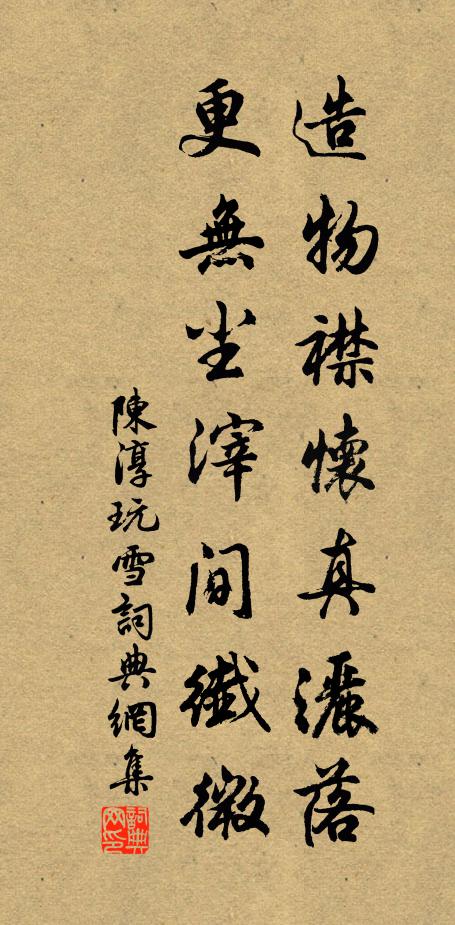 造物襟懷真灑落
更無尘滓間纖微
陳淳玩雪詞典網集
詞典网印